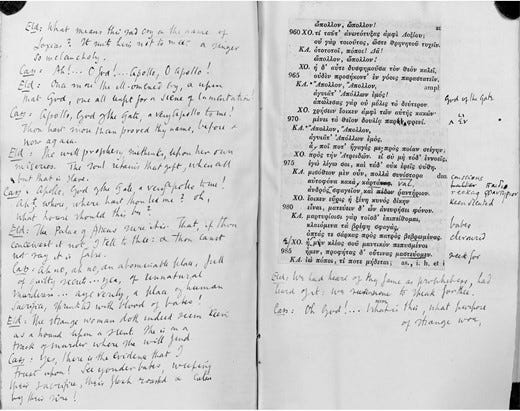 Eld: What means this sad cry on the name of
Loxias? It suits him not to meet a singer
so melancholy.
Cass: Ah!... O God!... Apollo, O Apollo!
Eld: Once more the ill-omened cry, & upon
that God, one all unfit for a scene of lamentation!
Cass: Apollo, God of the Gate, a very Apollo to me!
Thou hast more than proved thy name, before &
now again.
Eld: She will prophesy methinks, upon her own
miseries. The soul retains that gift, when all
but that is slave.
Cass: Apollo, God of the Gate, a very Apollo to me!
Ah, where, where hast thou led me? oh,
what house should this be?
Eld: The Palace of Atreus' sure this. That, if thou
conceivest it not, I tell to thee: & thou canst
not say it is false.
Cass: Ah no, ah no, an abominable place, full
of guilty secrets... yea, of unnatural
murders... aye verily, a place of human
sacrifice, sprinkled with blood of babes!
Eld: The strange woman doth indeed seem keen
as a hound upon a scent. She is on a
track of murder where she will find
Cass: Yes, there is the evidence that I
trust upon! See yonder babes, weeping
their sacrifice, their flesh roasted & eaten
by their sire!
ἄπολλον, ἄπολλον!
960 ΧΟ. τί ταῦτ' ἀνωτότυξας ἀμφὶ Λοξίου;
οὐ γὰρ τοιοῦτος, ὥστε θρηνητοῦ τυχεῖν.
ΚΑ. ὀτοτοτοῖ, πόποι! Δᾶ!
ἄπολλον, ἄπολλον!
ΧΟ. ἡ δ' αὖτε δυσφημοῦσα τὸν θεὸν καλεῖ,
965 οὐδὲν προσήκοντ' ἐν γόοις παραστατεῖν.
ΚΑ. Ἄπολλον, Ἄπολλον,
ἀγυιᾶτ' Ἀπόλλων ἐμός!
God of the Gate
ἀπώλεσας γὰρ οὐ μόλις τὸ δεύτερον
ΧΟ. χρήσειν ἔοικεν ἀμφὶ τῶν αὑτῆς κακῶν·
970 μένει τὸ θεῖον δουλίᾳ φρενί.
ΚΑ. Ἄπολλον, Ἄπολλον,
ἀγυιᾶτ' Ἀπόλλων ἐμός,
ἆ, ποῖ ποτ' ἤγαγές με; πρὸς ποίαν στέγην;
ΧΟ. πρὸς τὴν Ἀτρειδῶν. εἰ σὺ μὴ τόδ' ἐννοεῖς,
975 ἐγὼ λέγω σοι, καὶ τάδ' οὐκ ἐρεῖς ψύθη.
ΚΑ. μισόθεον μὲν οὖν, πολλὰ συνίστορα
αὐτοφόνα κακὰ,
ἀνδρὸς, σφαγεῖον καὶ
ΧΟ. ἔοικεν εὔρις ἡ ξένη κυνὸς δίκην
keen scented
980 εἶναι, ματεύειν δ' ὧν ἀνευρήσει φόνον.
ΚΑ. μαρτυρίοισι γὰρ τοῖσδ' ἐπιπείθομαι,
κλαιόμενα τὰ βρέφη σφαγὰς,
babes
ὀπτάς τε σάρκας πρὸς πατρὸς βεβρωμένας.
devoured
ΧΟ. κλέος σου μαντικὸν πεπυσμένοι
985 ἦμεν, προφήτας δ' οὔτινας μαστεύομεν.
seek for
ΚΑ. ἰὼ πόποι, τί ποτε μήδεται;
Eld: We had heard of thy fame as prophetess, had
heard of it: we to speak for thee.
Cass: Oh God!... What is this, what purpose
of strange woe,